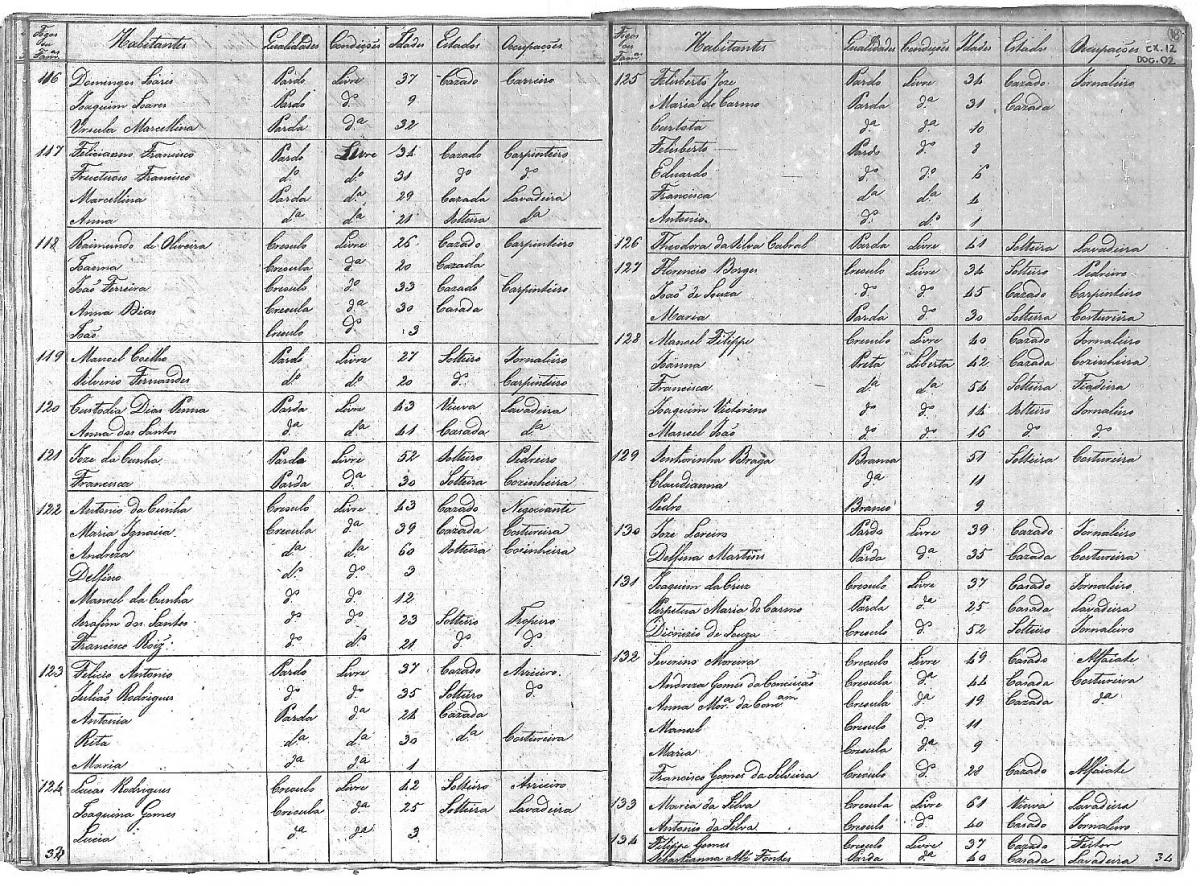 Fogos ou Fam.as Habitantes Qualidades Condições Idades Estados Ocupações
116 Domingos Soares Pardo Livre 37 Cazado Carreiro
Joaquim Soares Pardo d.o 9
Ursula Marcellina Parda d.a 32
117 Feliciano Francisco Pardo Livre 34 Cazado Carpinteiro
Fructuoso Francisco d.o d.o 31 d.o d.o
Marcellina Parda d.a 29 Cazada Lavadeira
Anna d.a d.a 21 Solteira d.a
118 Raimundo de Oliveira Creoulo Livre 26 Cazado Carpinteiro
Joanna Creoula d.a 20 Cazada
João Ferreira Creoulo d.o 33 Cazado Carpinteiro
Anna Dias Creoula d.a 30 Casada
João Creoulo d.o 3
119 Manoel Coelho Pardo Livre 27 Solteiro Jornaleiro
Silverio Fernandes d.o d.o 20 d.o Carpinteiro
120 Custodia Dias Penna Parda Livre 43 Viuva Lavadeira
Anna dos Santos d.a d.a 41 Casada d.a
121 Joze da Cunha Pardo Livre 52 Solteiro Pedreiro
Francisca Parda d.a 30 Solteira Cozinheira
122 Antonio da Cunha Creoulo Livre 43 Cazado Negociante
Maria Ignacia Creoula d.a 39 Cazada Costureira
Andreza d.a d.a 60 Solteira Cozinheira
Delfino d.o d.o 3
Manoel da Cunha d.o d.o 12
Serafim dos Santos d.o d.o 23 Solteiro Tropeiro
Francisco Roiz d.o d.o 21 d.o d.o
123 Felicio Antonio Pardo Livre 37 Cazado Arrieiro
Julião Rodrigues d.o d.o 35 Solteiro d.o
Antonia Parda d.a 24 Cazada
Rita d.a d.a 30 d.a Costureira
Maria d.a d.a 1
124 Lucas Rodrigues Creoulo Livre 42 Solteiro Arrieiro
Joaquina Gomes Creoula d.a 25 Solteira Lavadeira
Lucia d.a d.a 3
Fogos ou Fam.as Habitantes Qualidades Condições Idades Estados Ocupações
CX.12
DOC.02
125 Feliberto Joze Pardo Livre 34 Cazado Jornaleiro
Maria do Carmo Parda d.a 31 Cazada
d.a d.a 10
Feliberto Pardo d.o
Eduardo d.o d.o 6
Francisca d.a d.a 4
Antonio d.o d.o 1
126 Theodora da Silva Cabral Parda Livre 41 Solteira Lavadeira
127 Florencio Borges Creoulo Livre 34 Solteiro Pedreiro
João de Souza d.o d.o 45 Cazado Carpinteiro
Maria Parda d.a 30 Solteira Costureira
128 Manoel Filippe Creoulo Livre 40 Cazado Jornaleiro
Joanna Preta Liberta 42 Cazada Cozinheira
Francisca d.a d.a 54 Solteira Fiadeira
Joaquim Victorino d.o d.o 14 Solteiro Jornaleiro
Manoel João d.o d.o 16 d.o d.o
129 Braga Branca 51 Solteira Costureira
Claudianna d.a 11
Pedro Branco 9
130 Joze Loreiro Pardo Livre 39 Cazado Jornaleiro
Delfina Martins Parda d.a 35 Cazada Costureira
131 Joaquim da Cruz Creoulo Livre 37 Casado Jornaleiro
Perpetua Maria do Carmo Parda d.a 25 Casada Lavadeira
Dionizio de Souza Creoulo d.o 52 Solteiro Jornaleiro
132 Severino Moreira Creoulo Livre 49 Casado Alfaiate
Andreza Gomes da Conceição Creoula d.a 44 Casada Costureira
Anna Mor.a da Conc.am Creoula d.a 19 Cazada d.a
Manoel Creoulo d.o 11
Maria Creoula d.a 9
Francisco Gomes da Silveira Creoulo d.o 28 Cazado Alfaiate
133 Maria da Silva Creoula Livre 61 Viuva Lavadeira
Antonio da Silva Creoulo d.o 40 Casado Jornaleiro
134 Filippe Gomes Creoulo Livre 37 Casado Feitor
Sebastianna M.a Fontes Parda d.a 40 Casada Lavadeira
34